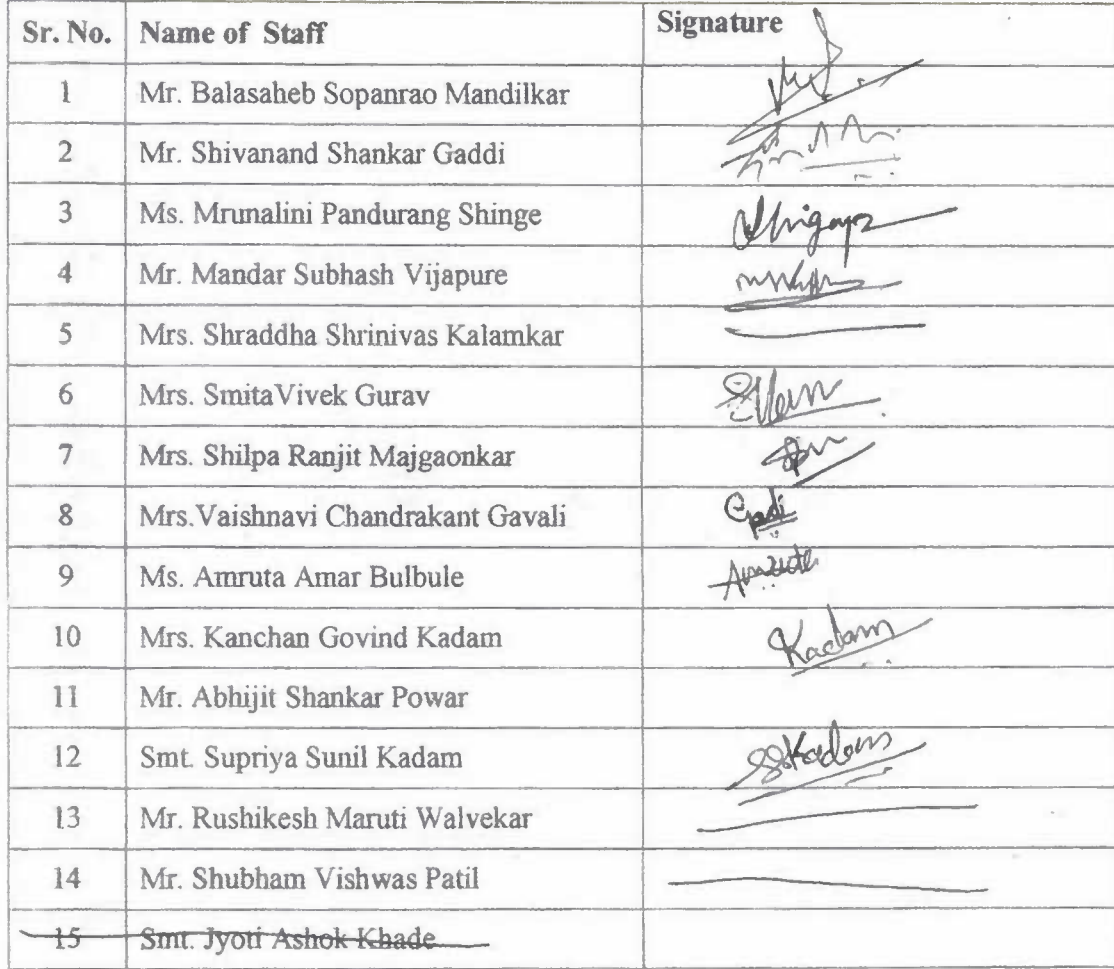 Sr. No. Name of Staff Signature
1 Mr. Balasaheb Sopanrao Mandilkar
2 Mr. Shivanand Shankar Gaddi
3 Ms. Mrunalini Pandurang Shinge
4 Mr. Mandar Subhash Vijapure
5 Mrs. Shraddha Shrinivas Kalamkar
6 Mrs. SmitaVivek Gurav
7 Mrs. Shilpa Ranjit Majgaonkar
8 Mrs.Vaishnavi Chandrakant Gavali
9 Ms. Amruta Amar Bulbule
10 Mrs. Kanchan Govind Kadam Kadam
11 Mr. Abhijit Shankar Powar
12 Smt. Supriya Sunil Kadam SSKadam
13 Mr. Rushikesh Maruti Walvekar
14 Mr. Shubham Vishwas Patil
15 Smt. Jyoti Ashok Khade